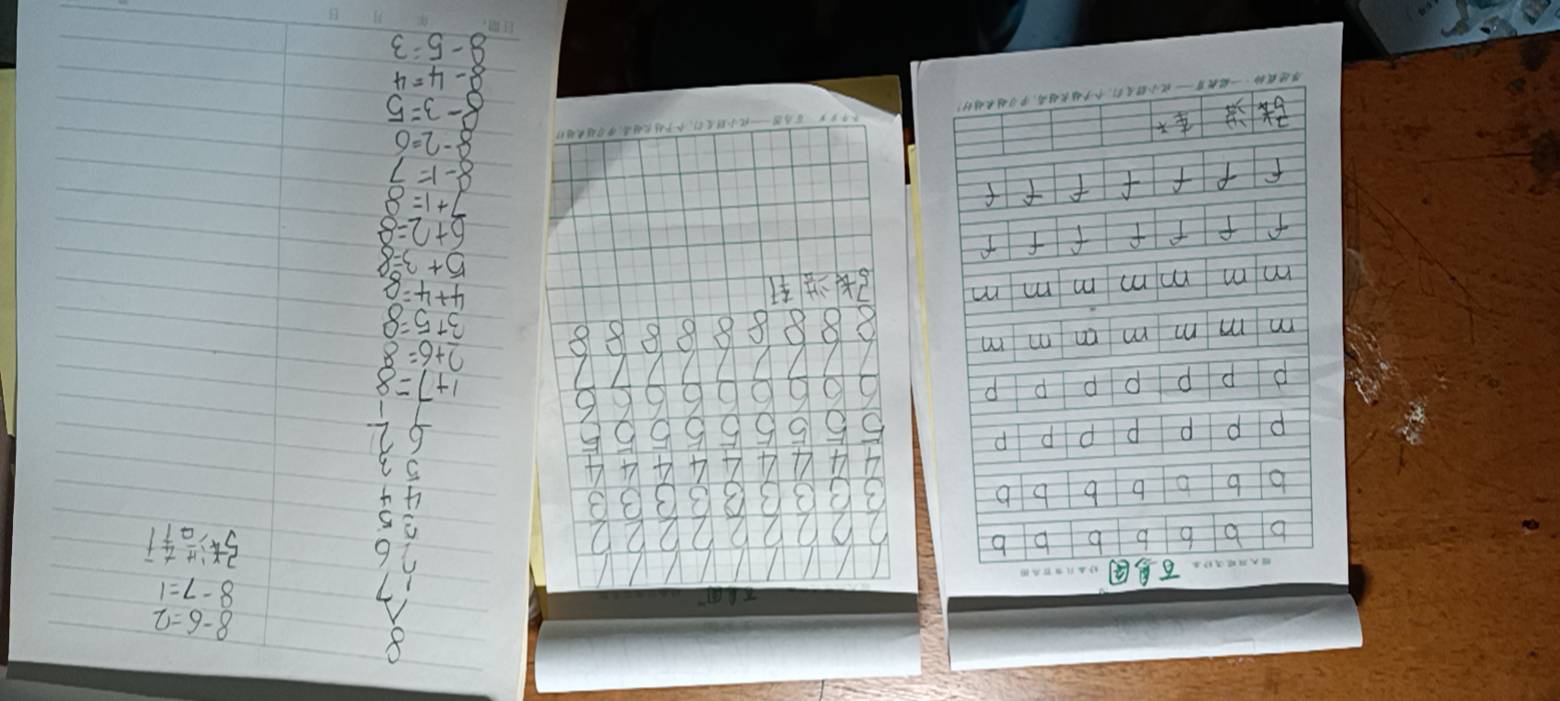 百易园
b b b b b b b
b b b b b b b
p p p p p p p
p p p p p p p
m m m m m m m
m m m m m m m
f f f f f f f
f f f f f f f
1 1 1 1 1 1 1 1 1
2 2 2 2 2 2 2 2 2
3 3 3 3 3 3 3 3 3
4 4 4 4 4 4 4 4 4
5 5 5 5 5 5 5 5 5
6 6 6 6 6 6 6 6 6
7 7 7 7 7 7 7 7 7
8 8 8 8 8 8 8 8 8
8
1 7
2 6
3 5
4 4
5 3
6 2
7 1
1+7=8
2+6=8
3+5=8
4+4=8
5+3=8
6+2=8
7+1=8
8-1=7
8-2=6
8-3=5
8-4=4
8-5=3
日期: 年 月 日
8-6=2
8-7=1